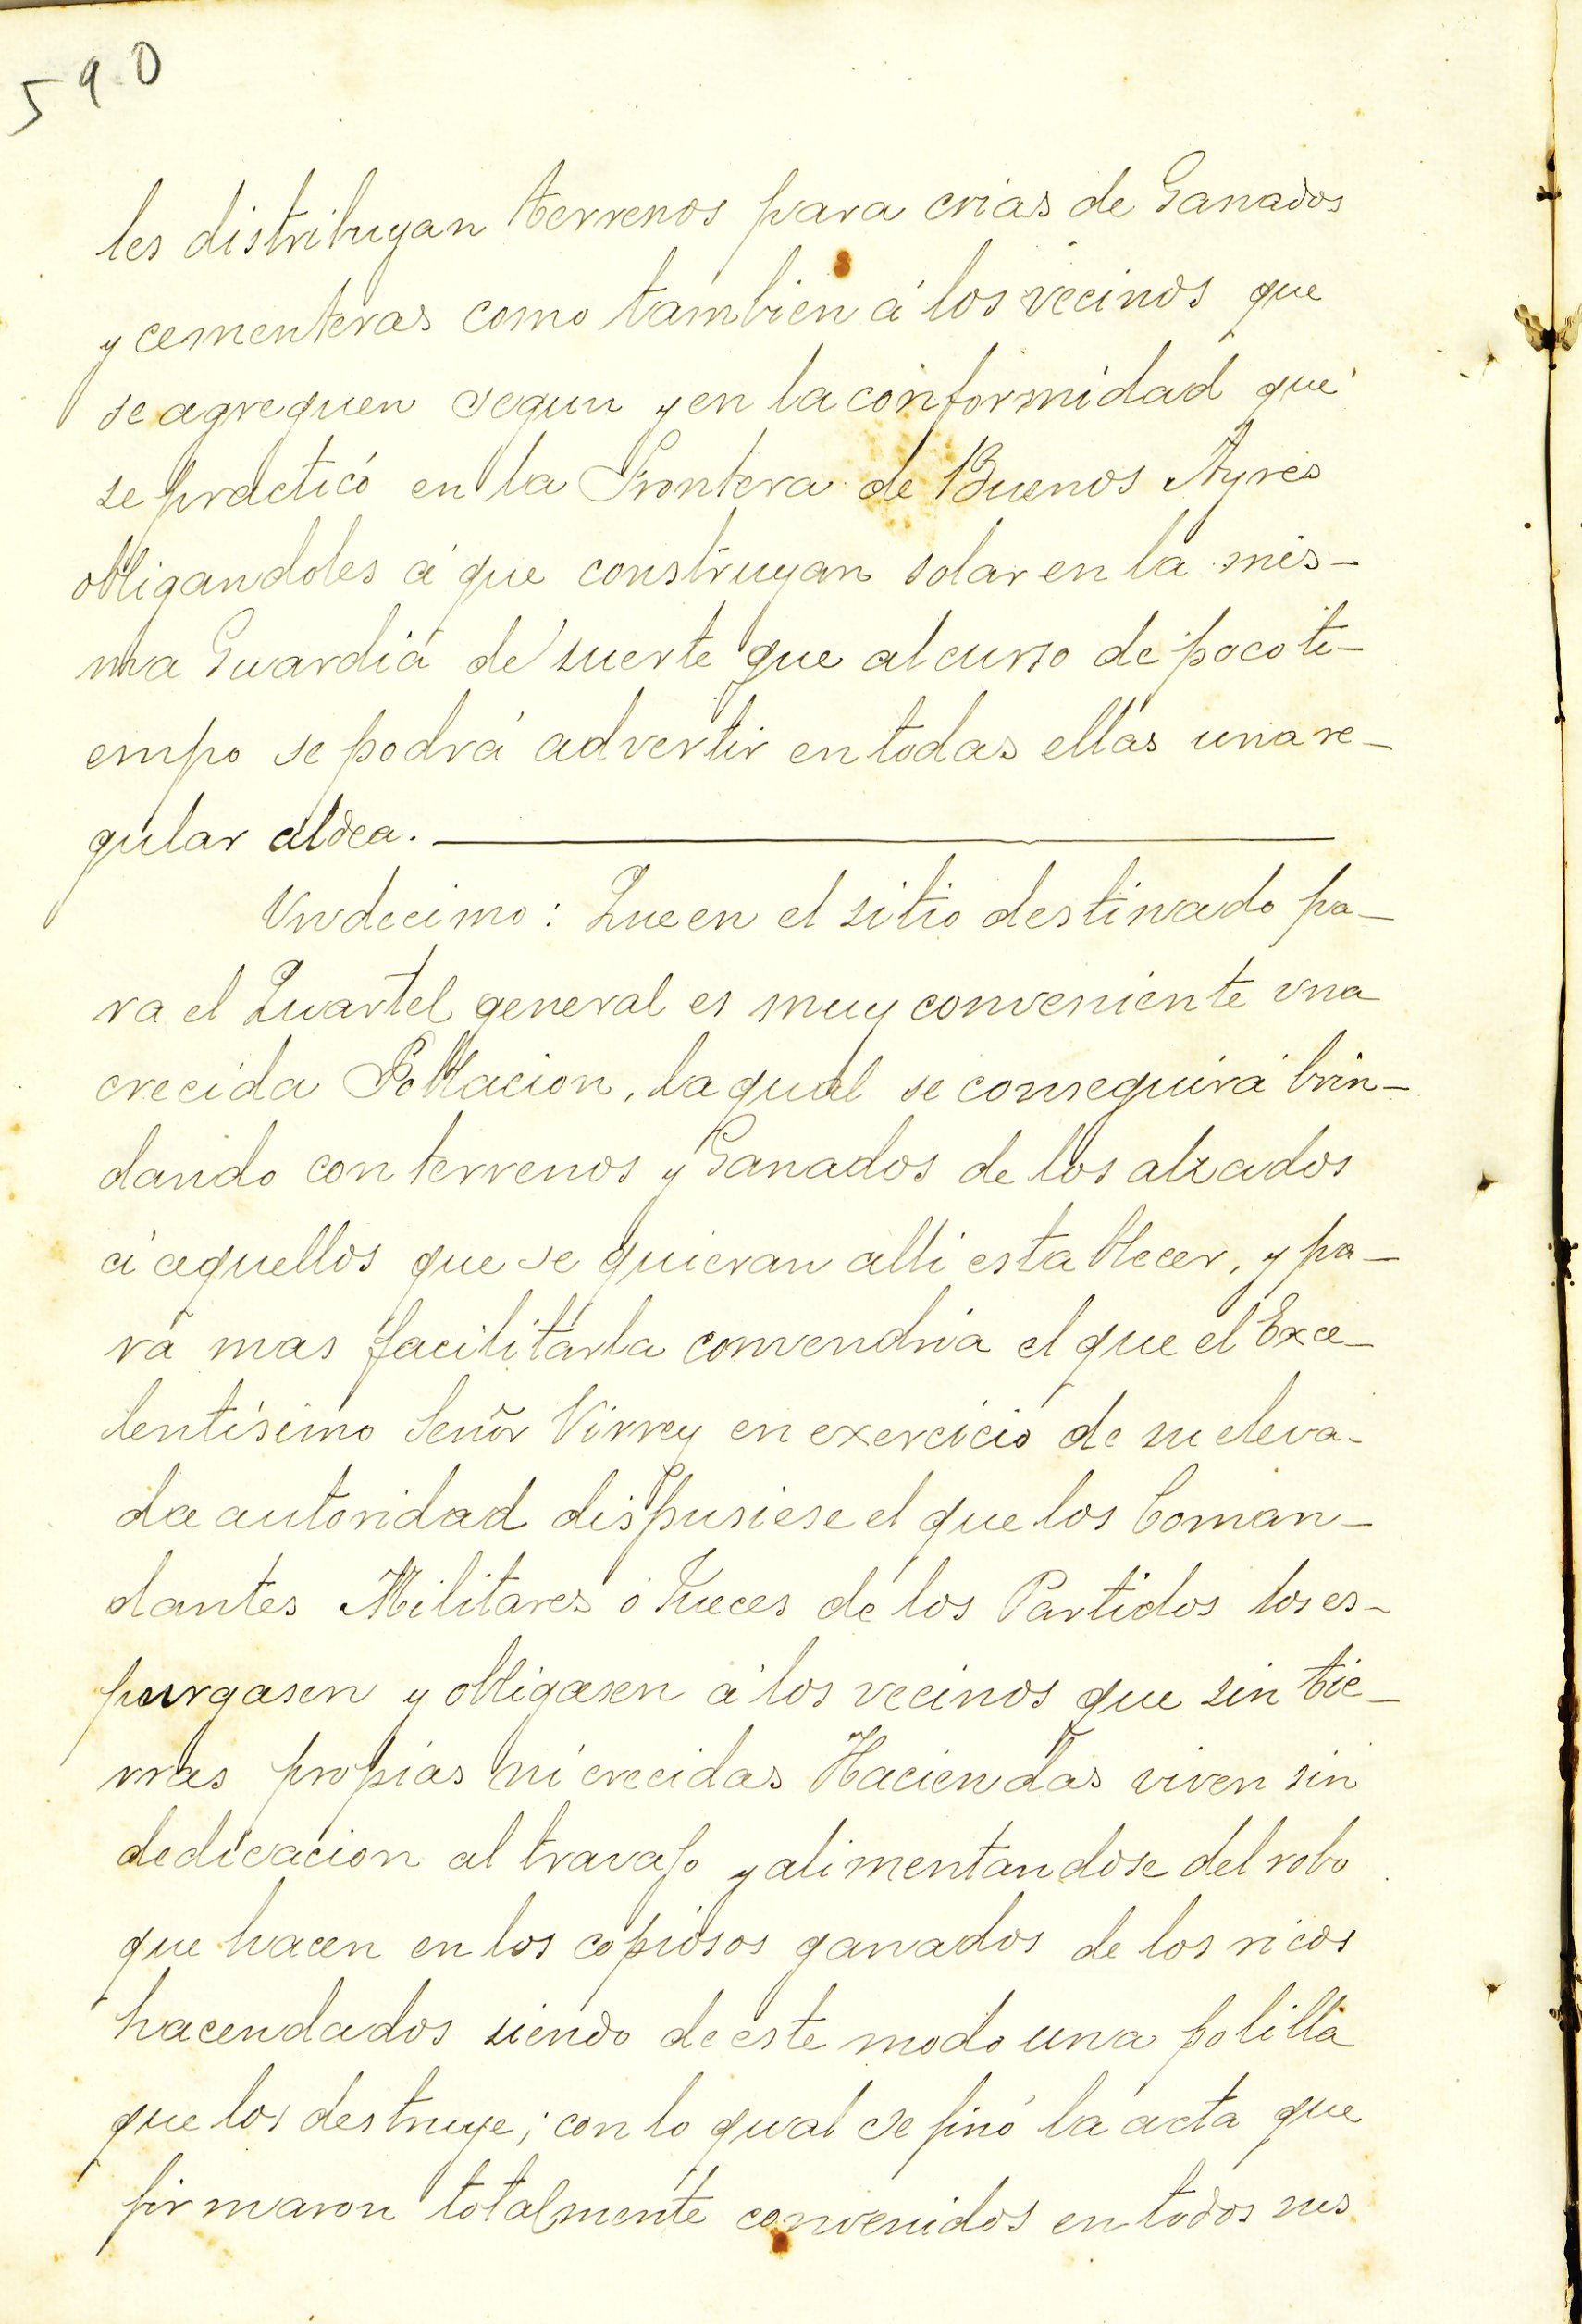 590
les distribuyan terrenos para crias de Ganados
y cementeras como tambien á los vecinos que
se agreguen segun y en la conformidad que
se practicó en la Frontera de Buenos Ayres
obligandoles á que construyan solar en la mis-
ma Guardia de suerte que al curso de poco ti-
empo se podrá advertir en todas ellas una re-
gular aldea.
Undecimo: Que en el sitio destinado pa-
ra el Quartel general es muy conveniente una
crecida Poblacion, la qual se conseguirá brin-
dando con terrenos y Ganados de los alzados
á aquellos que se quieran alli establecer, y pa-
ra mas facilitarla convendria el que el Exce-
lentisimo Señor Virrey en exercicio de su eleva-
da autoridad dispusiese el que los Coman-
dantes Militares ó Jueces de los Partidos los es-
purgasen y obligasen á los vecinos que sin tie-
rras propias ni crecidas Haciendas viven sin
dedicacion al travajo y alimentandose del robo
que hacen en los copiosos ganados de los ricos
hacendados siendo de este modo una polilla
que los destruye; con lo qual se finó la acta que
firmaron totalmente convenidos en todos sus